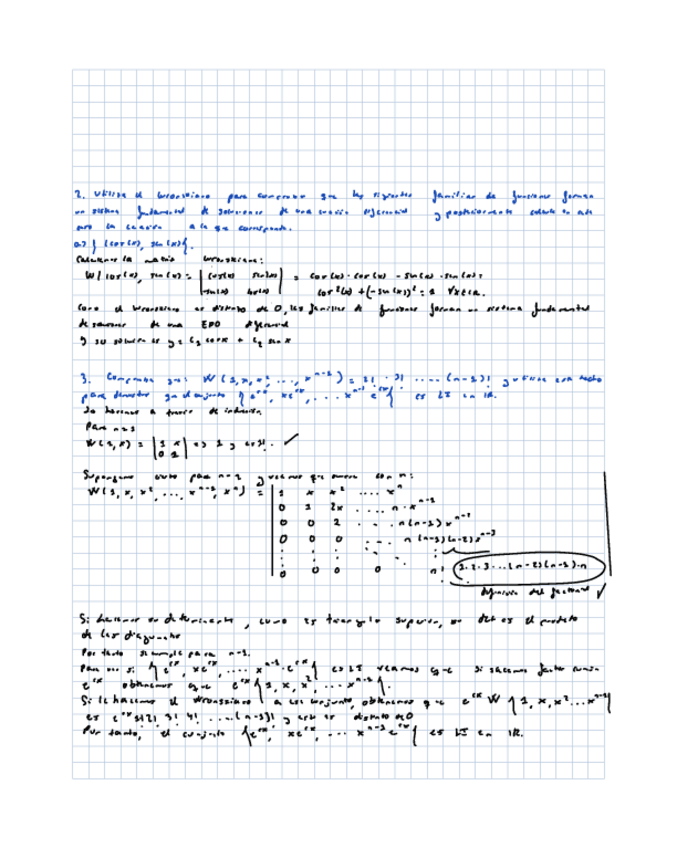 2. Utiliza el wronskiano para comprobar que las siguientes familias de funciones forman
un sistema fundamental de soluciones de una ecuación diferencial y posteriormente calcula en cada
caso la ecuación a la que corresponde.
a) { cos(x), sen(x)}.
Calculamos la matriz wronskiana:
W( cos(x), sen(x) = | cos(x) sen(x) | = cos(x) · cos(x) - sen(x) · sen(x) =
-sen(x) cos(x) cos²(x) + (-sen(x))² = 1 ∀x∈R.
Como el wronskiano es distinto de 0, las familias de funciones forman un sistema fundamental
de soluciones de una EDO
y su solución es y = C₁ cos x + C₂ sen x
3. Comprueba que: W (1, x, x², ..., xⁿ⁻¹) = 2! · 3! ···· (n-1)! y utiliza este hecho
para demostrar que el conjunto { eʳˣ, xeʳˣ, ... xⁿ⁻¹ eʳˣ } es LI en R.
Lo haremos a través de inducción
Para n=2
W(1, x) = | 1 x | => 1 y es 1!. ✓
0 1
Supongamos cierto para n-1 y veamos que con n:
W(1, x, x², ..., xⁿ⁻¹, xⁿ) = | 1 x x² .... xⁿ |
0 1 2x .... n·xⁿ⁻¹
0 0 2 .... n(n-1)xⁿ⁻²
0 0 0 .... n(n-1)(n-2)xⁿ⁻³
0 0 0 0 n! (1·2·3···(n-2)(n-1)·n
definición del factorial
Si hacemos su determinante, como es triangular superior, su det es el producto
de las diagonales
Por tanto se cumple para n-1.
Para ver si { eʳˣ, xeʳˣ, ... xⁿ⁻¹·eʳˣ } es LI veamos que si sacamos factor común
eʳˣ obtenemos que eʳˣ { 1, x, x², ... xⁿ⁻¹ }.
Si le hacemos el wronskiano a ese conjunto, obtenemos que eʳˣ W { 1, x, x² ... xⁿ⁻¹ }
es eʳˣ 1! 2! 3! 4! ....(n-1)! y esto es distinto de 0
Por tanto, el conjunto { eʳˣ, xeʳˣ, ... xⁿ⁻¹ eʳˣ } es LI en R.